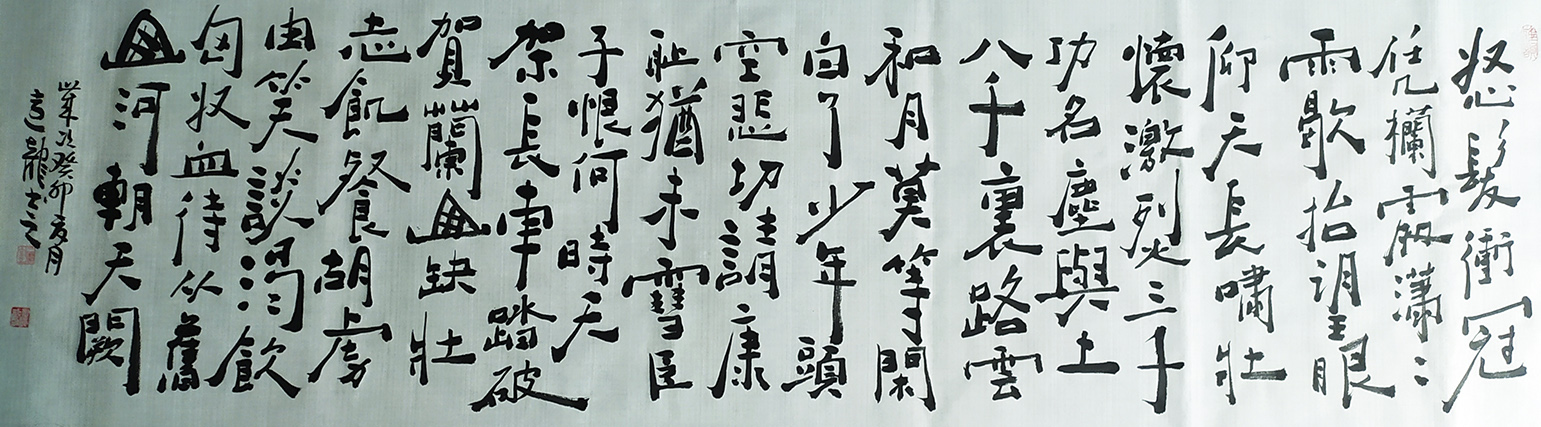 怒髮衝冠
凭欄處瀟〻
雨歇抬望眼
仰天長嘯壯
懷激烈三十
功名塵與土
八千裏路雲
和月莫等閑
白了少年頭
空悲切靖康
恥猶未雪臣
子恨何時灭
架長車踏破
賀蘭山缺壯
志飢餐胡虜
肉笑談渴飲
匈奴血待从舊
山河朝天闕
歲次癸卯月
龍